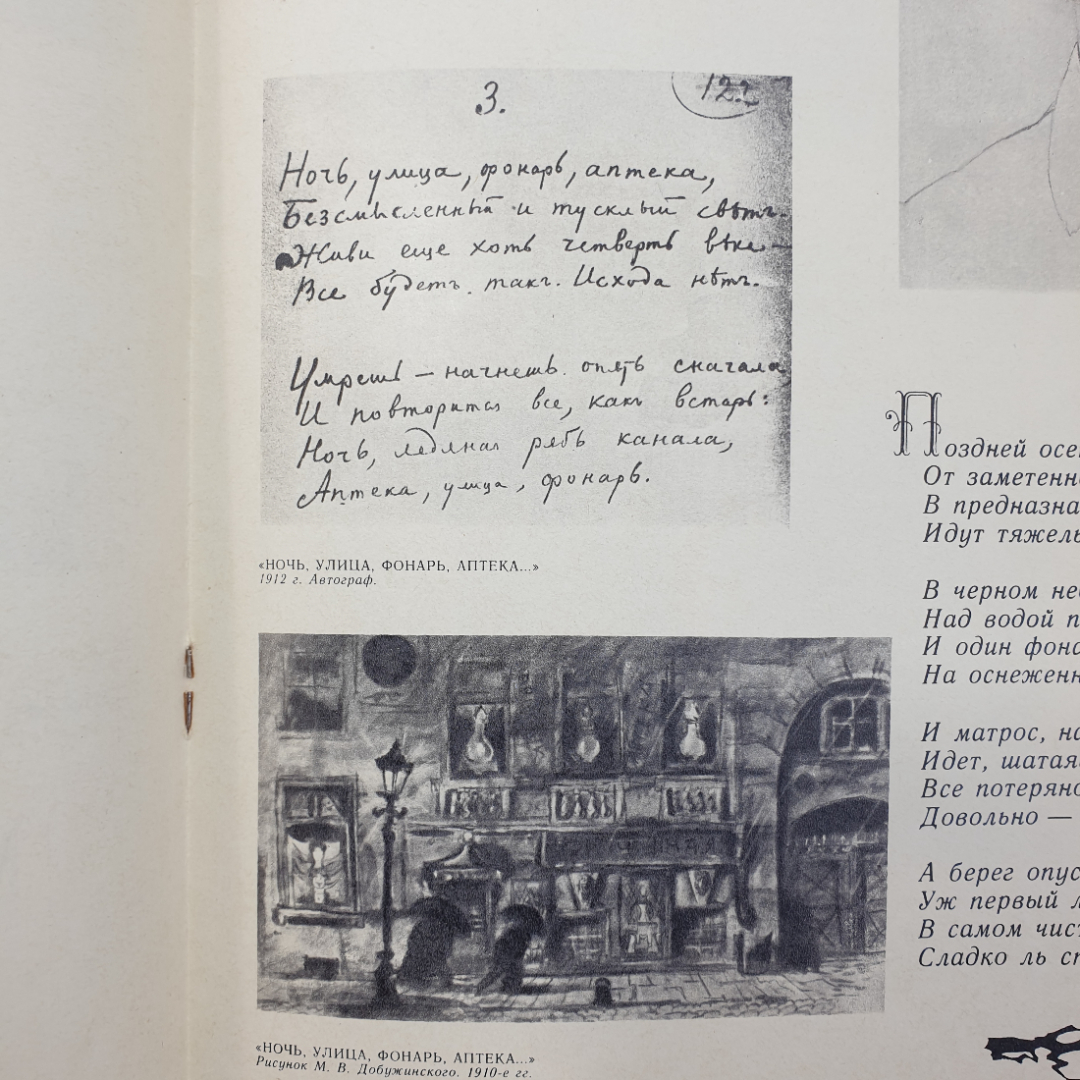 3.
122
Ночь, улица, фонарь, аптека,
Безсмысленный и тусклый свѣтъ.
Живи еще хоть четверть вѣка —
Все будетъ такъ. Исхода нѣтъ.
Умрешь — начнешь опять сначала,
И повторится все, какъ встарь:
Ночь, ледяная рябь канала,
Аптека, улица, фонарь.
«НОЧЬ, УЛИЦА, ФОНАРЬ, АПТЕКА...»
1912 г. Автограф.
«НОЧЬ, УЛИЦА, ФОНАРЬ, АПТЕКА...»
Рисунок М. В. Добужинского. 1910-е гг.
Поздней осе
От заметенн
В предназна
Идут тяжел
В черном не
Над водой п
И один фона
На оснеженн
И матрос, на
Идет, шатая
Все потеряно
Довольно —
А берег опус
Уж первый л
В самом чист
Сладко ль сп